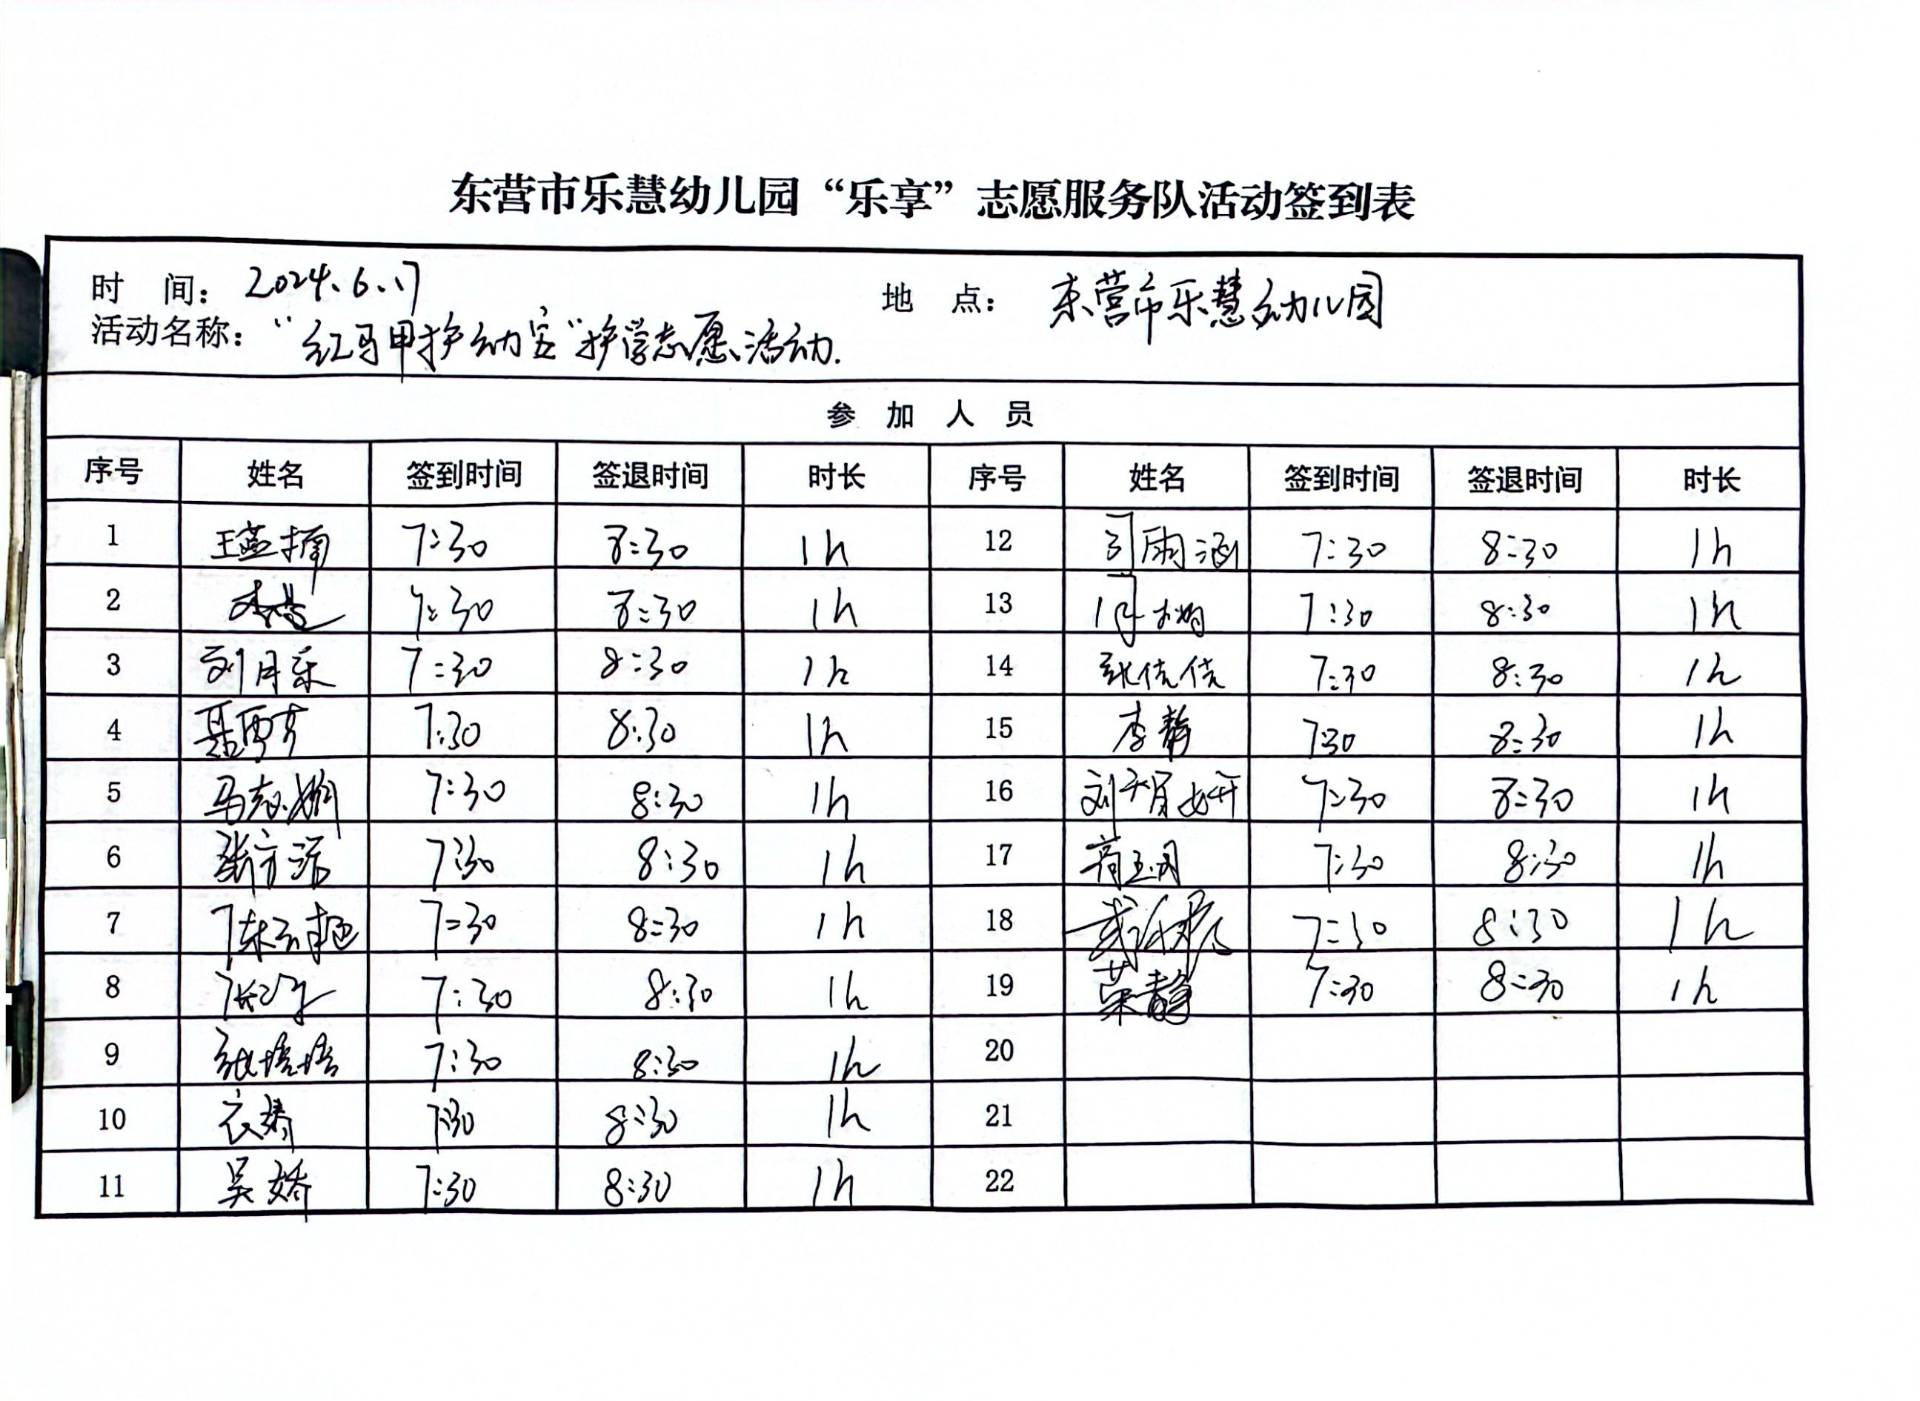 东营市乐慧幼儿园“乐享”志愿服务队活动签到表
时 间： 2024.6.17 地 点： 东营市乐慧幼儿园
活动名称：“红马甲护幼宝”护学志愿活动.
参 加 人 员
序号 姓名 签到时间 签退时间 时长 序号 姓名 签到时间 签退时间 时长
1 王孟楠 7:30 8:30 1h 12 司雨涵 7:30 8:30 1h
2 7:30 8:30 1h 13 7:30 8:30 1h
3 刘月乐 7:30 8:30 1h 14 张佶佶 7:30 8:30 1h
4 7:30 8:30 1h 15 李静 7:30 8:30 1h
5 马志娟 7:30 8:30 1h 16 7:30 8:30 1h
6 7:30 8:30 1h 17 7:30 8:30 1h
7 7:30 8:30 1h 18 7:30 8:30 1h
8 7:30 8:30 1h 19 荣静 7:30 8:30 1h
9 张培培 7:30 8:30 1h 20
10 衣娇 7:30 8:30 1h 21
11 吴娇 7:30 8:30 1h 22